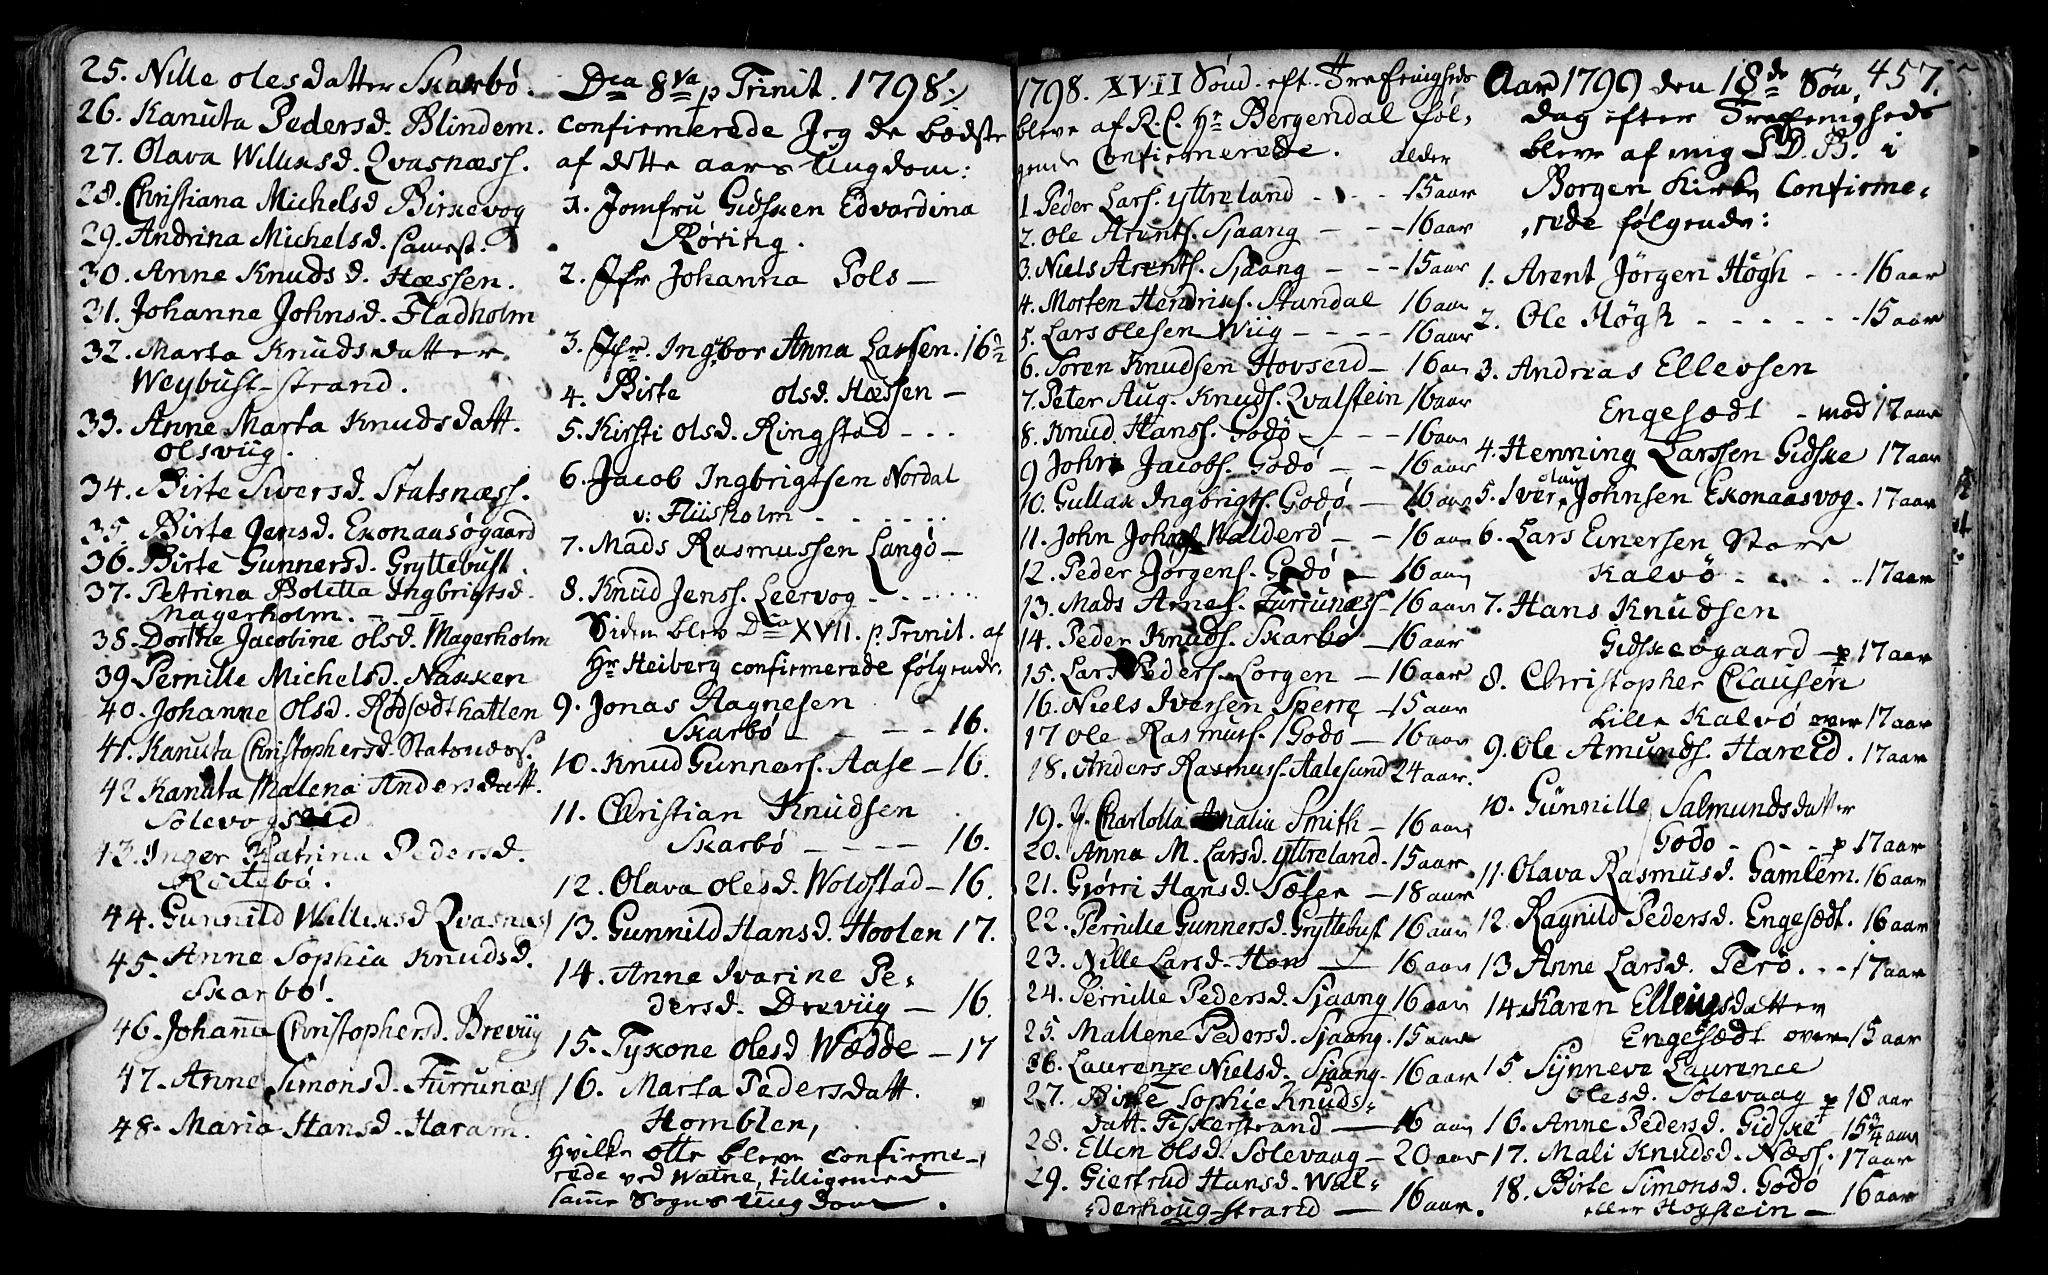 25. Nille olesdatter Skarbö.
26. Kanuta Pedersd. Blindem.
27. Olava Willumsd. Qvasnæss.
28. Christiana Michelsd Birkevog
29. Andrina Michelsd. samest.
30. Anne Knudsd. Hæssen.
31. Johanne Johnsd. Fladholm
32. Marta Knudsdatter
Weybust-strand.
33. Anne Marta Knudsdatt.
olsviig.
34. Birte Siversd. Statsnæss.
35. Birte Jensd. Exonaasögaard
36. Birte Gunnersd. Gryttebust.
37. Petrina Boletta Ingbrigtsd.
Magerholm.
38. Dorthe Jacobine olsd. Magerholm
39. Pernille Michelsd. Nakken
40. Johanne Olsd. Rödsædthatlen
41. Kanuta Christophersd. Statsnæss.
42 Kanuta Malena Andersdatt.
Solevogseid
43. Inger Katrina Pedersd.
Röttebö.
44. Gunnild Willumsd Qvasnæss
45. Anne Sophia Knudsd.
Skarbö.
46. Johaña Christophersd. Breviig
47. Anne Simonsd. Furrunæss
48. Maria Hansd. Haram.
Dca 8va p Trinit. 1798.
confirmerede Jeg de bædste
af dette aars Ungdom:
1. Jomfru Gidsken Edvardina
Röring.
2. Jfr Johanna Pols —
3. Jfr. Ingbor Anna Lassen. 16½
4. Birte olsd. Hæssen —
5. Kirsti olsd. Ringstad - - -
6. Jacob Ingbrigtsen Nordal
v: Fliisholm - - - - - -
7. Mads Rasmussen Langö —
8. Knud Jenss. Leervog - - - - - -
Siden blev Dca XVII. p. Trinit. af
Hr Heiberg confirmerede følgende.
9. Jonas Hagnesen
Skarbö - - - - 16.
10. Knud Gunners. Aase — 16.
11. Christian Knudsen
Skarbö - - - - 16.
12. Olava olesd. Woldstad — 16.
13. Gunnild Hansd. Hoolen 17.
14. Anne Ivarine Pe-
dersd. Dreviig — 16.
15. Tyxone olesd Wædde — 17
16. Marta Pedersdatt.
Homblen,
hvilke otte bleve confirme-
rede ved Watne, tilligemed
samme Sogns Ungdom.
1798. XVII Sönd. eft. Trefenigheds
bleve af R. C. Hr Bergendal føl-
gende Confirmerede. alder
1. Peder Larss. yttreland - - - 15 aar
2. Ole Arents. Sjaang - - - 16 aar
3. Niels Arents. Sjaang - - - 15 aar
4. Morten Hendriks. Standal 16 aar
5. Lars olesen Wiig - - - - 16 aar
6. Soren Knudsen Hovseid — 16 aar
7. Peter Aug. Knuds. Qvalstein 16 aar
8. Knud Hanss. Godö - - - - 16 aar
9 John Jacobs. Godö - - 16 aar
10. Gullak Ingbrigts. Godö. - 16 aar
11. John Johns Walderö - - 16 aar
12. Peder Jörgens. Godö - 16 aar
13. Mads Arnes. Furrunæss - 16 aar
14. Peder Knuds. Skarbö - 16 aar
15. Lars Peders. Lorgen - 16 aar
16. Niels Iversen Sperre - 15 aar
17 Ole Rasmuss. Godö - 16 aar
18. Anders Rasmuss. Aalesund 24 aar.
19. J. Charlotta Amalia Smith - 16 aar
20. Anna M. Larsd. yttreland. 15 aar
21. Gjörri Hansd. Tæfer - 18 aar
22. Pernille Gunnersd. Gryttebust 16 aar
23. Nille Larsd. How — 16 aar
24. Pernille Pedersd. Sjaang 16 aar
25. Mallene Pedersd. Sjaang. 15 aar
26. Laurenze Nielsd. Sjaang. 16 aar
27. Birte Sophie Knuds-
datt. Fiskerstrand — 16 aar
28. Ellen olsd. Solevaag — 20 aar
29. Giertrud Hansd. Wal-
derhoug-strand — 16 aar.
457.
Aar 1799 den 18de Søn-
dag efter Trefenigheds
bleve af mig S. D. B. i
Borgen Kirke Confirme-
rede følgende:
1. Arent Jörgen Högh - - - 16 aar
2. Ole Högh - - - - - - 15 aar
3. Andreas Ellevsen
Engesædt - mod 17 aar
4. Henning Larssen Gidske 17 aar
5. Iver olaus Johnsen Exonaasvog. 17 aar
6. Lars Einersen Store
Kalvö - - - - - 17 aar
7. Hans Knudsen
Gidskeögaard - p 17 aar
8. Christopher Clausen
Lille Kalvö over 17 aar
9. Ole Amunds. Hareid. 17 aar
10. Günnille Salmundsdatter
Godö - - - p 17 aar
11. Olava Rasmusd. Gamlem. 16 aar
12. Ragnild Pedersd. Engesædt. 16 aar
13 Anne Larsd. Terö. - - 17 aar
14. Karen Ellevsdatter
Engesædt over 15 aar
15. Synneve Laurence
olesd. Solevaag p 18 aar
16. Anne Pedersd. Gidske 15¾ aar
17. Mali Knudsd. Næss. 17 aar
18. Birte Simonsd. Godö
eller Hogstein — 16 aar